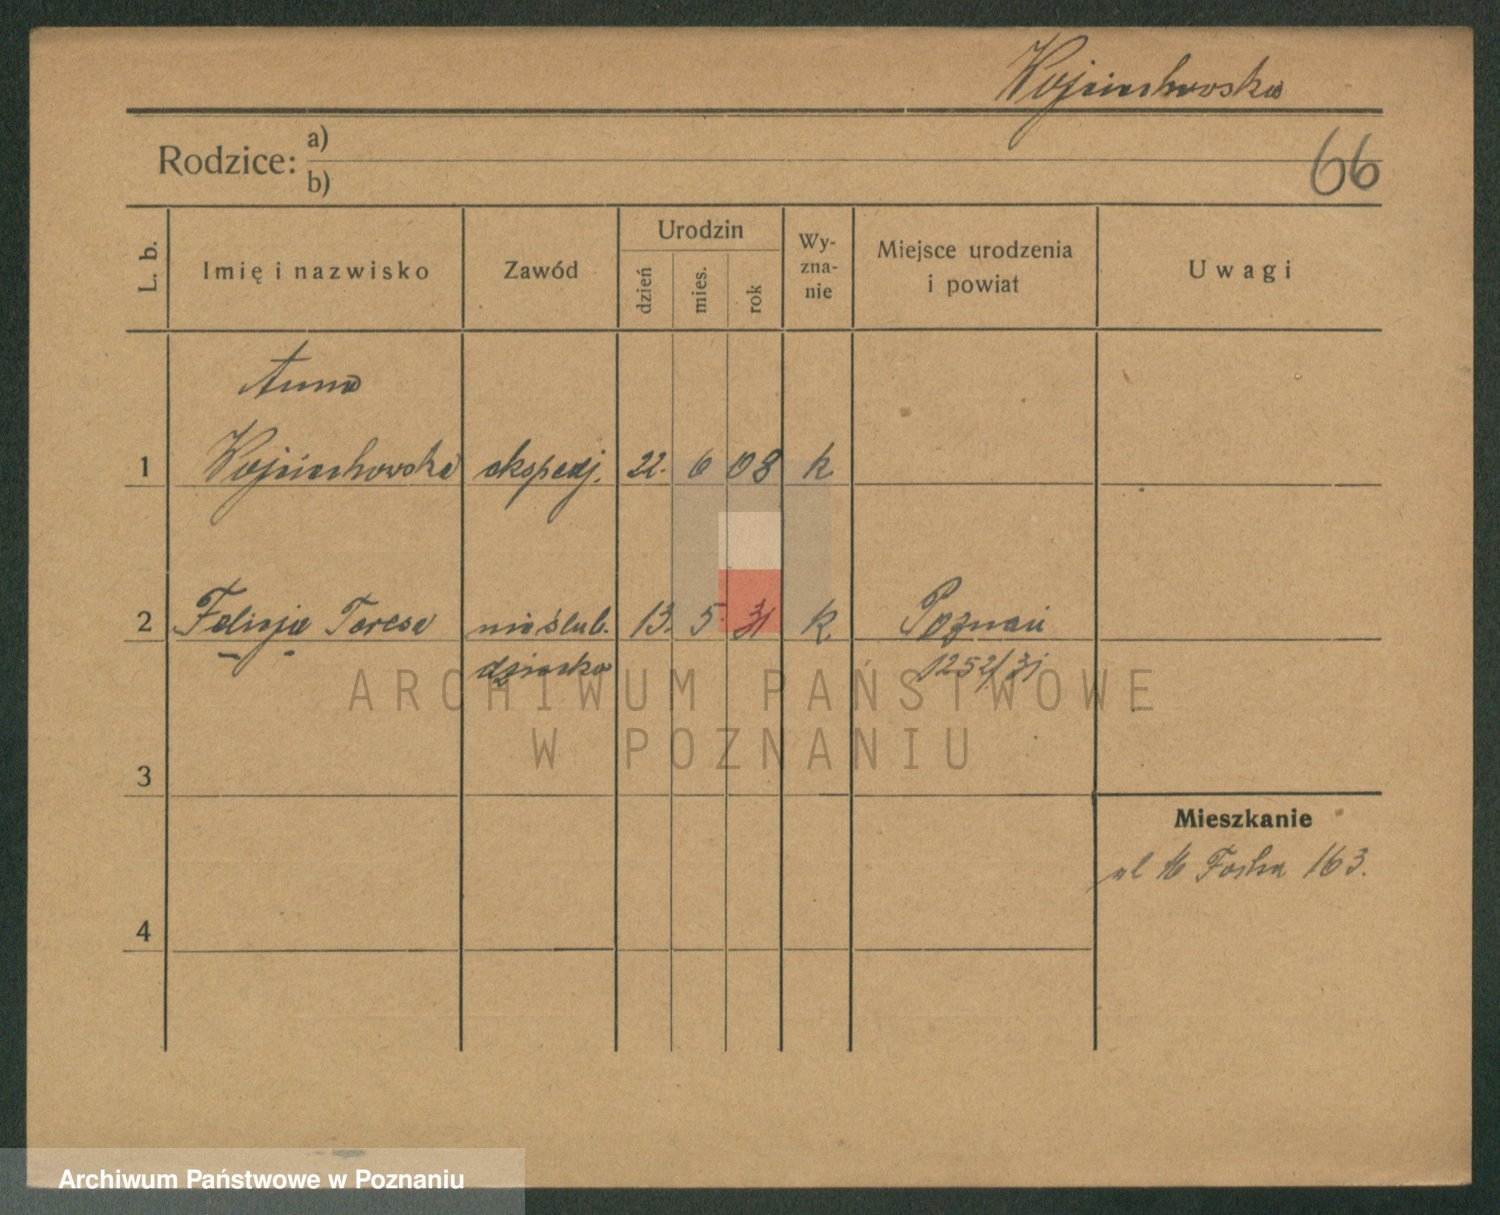 Wojciechowska
66
Rodzice: a)
b)
L. b.
Imię i nazwisko
Zawód
Urodzin
dzień
mies.
rok
Wy-
zna-
nie
Miejsce urodzenia
i powiat
Uwagi
Anna
1 Wojciechowska ekspedj. 22. 6 08 k
2 Felicja Teresa nieślub. 13. 5. 31 k Poznań
dziecko 1252/31
ARCHIWUM PAŃSTWOWE
W POZNANIU
3
Mieszkanie
ul M Focha 163.
4
Archiwum Państwowe w Poznaniu